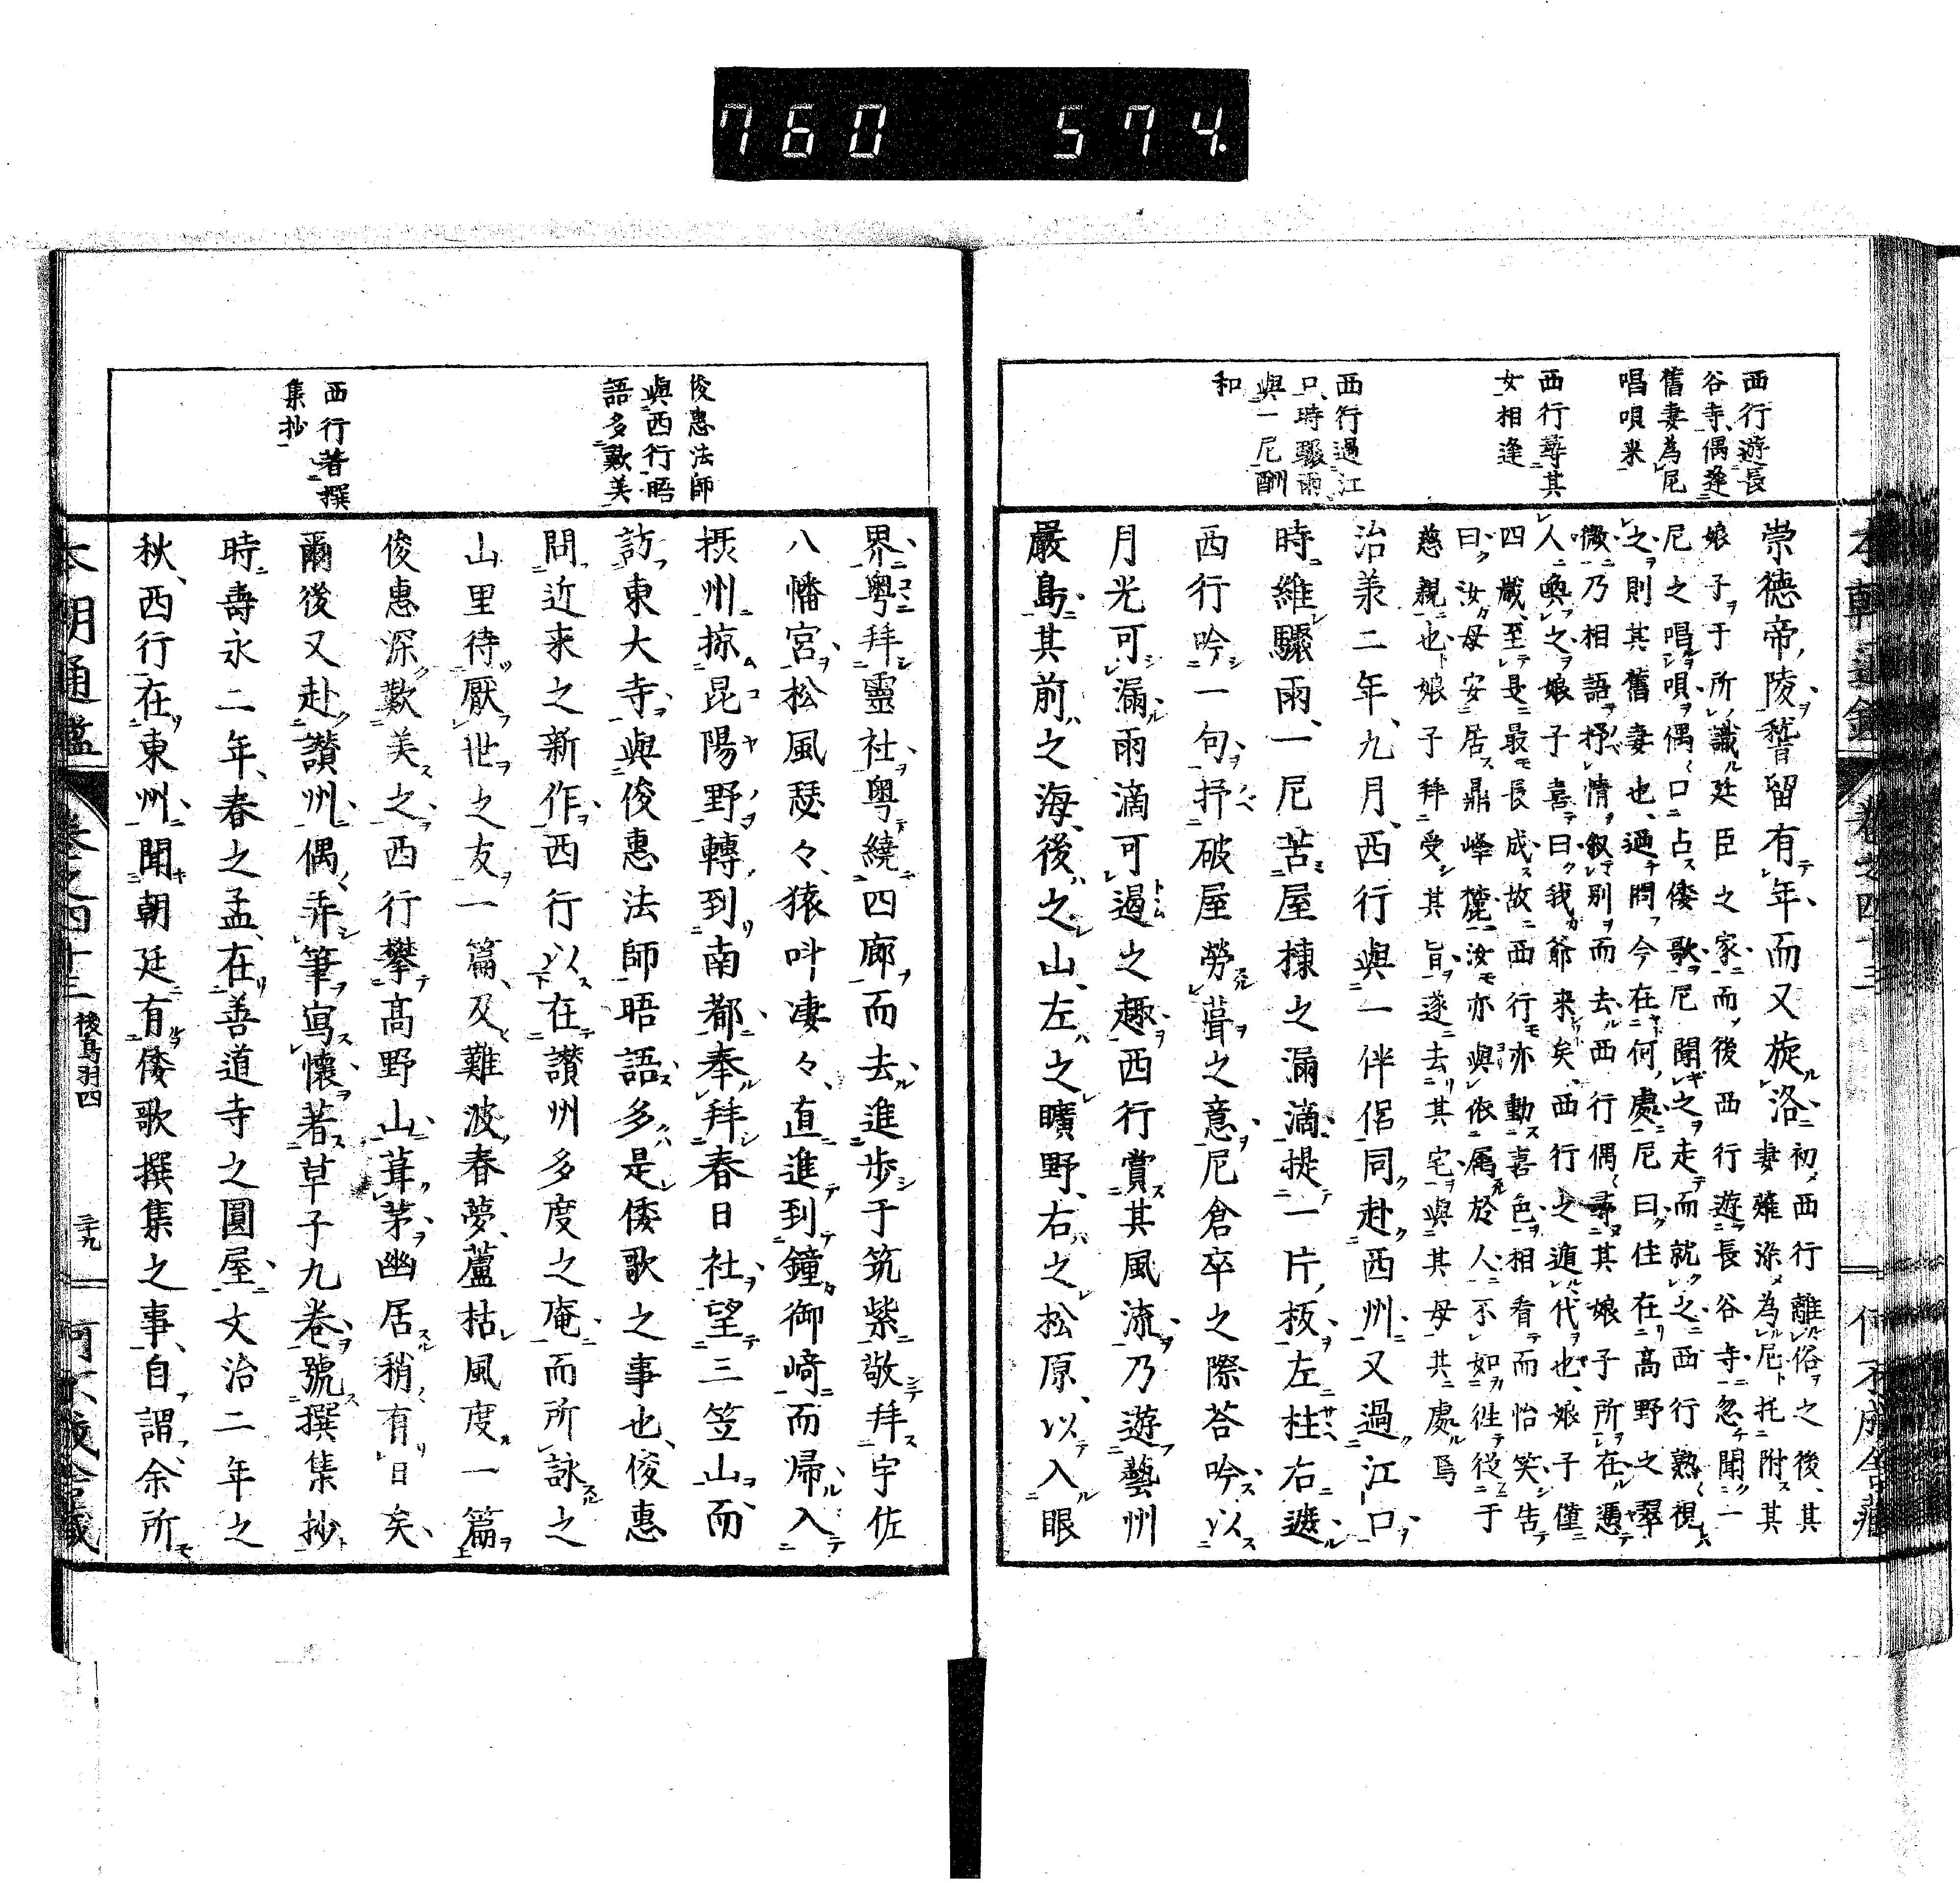 760 574.
西行遊長
谷寺偶逢
舊妻為尼
唱唄来
西行尋其
女相逢
西行過江
口時驟雨
與一尼酬
和
崇德帝陵稽留有年而又旋洛
初西行離俗之後其
妻雖染為尼托附其
娘子于所識廷臣之家而後西行遊長谷寺忽聞一
尼之唱唄偶口占倭歌尼聞之走而就之西行熟視
之則其舊妻也廼問今在何處尼曰住在高野之翠
微乃相語抒情叙別而去西行偶尋其娘子所在憑
人喚之娘子喜曰我爺来矣西行之遁代也娘子僅
四歲至是最長成故西行亦動喜色相看而怡笑告
曰汝母安居鼎峰麓汝亦與依属於人不如徃從于
慈親也娘子拜受其旨遂去其宅與其母其處焉
治美二年九月西行與一伴侶同赴西州又過江口
時維驟雨一尼苦屋棟之漏滴提一片板左柱右遮
西行吟一句抒破屋勞葺之意尼倉卒之際荅吟以
月光可漏雨滴可遏之趣西行賞其風流乃遊藝州
嚴島其前之海後之山左之曠野右之松原以入眼
本朝通鑑 卷之四十三
俊惠法師
與西行晤
語多歎美
西行著撰
集抄
界粤拜靈社粤繞四廊而去進步于筑紫敬拜宇佐
八幡宮松風瑟々猿叫凄々直進到鐘御﨑而帰入
摂州掠昆陽野轉到南都奉拜春日社望三笠山而
訪東大寺與俊惠法師晤語多是倭歌之事也俊惠
問近来之新作西行以在讃州多度之庵而所詠之
山里待厭世之友一篇及難波春夢蘆枯風度一篇
俊惠深歎美之西行攀高野山葺茅幽居稍有日矣
爾後又赴讃州偶弄筆寫懷著草子九巻號撰集抄
時壽永二年春之孟在善道寺之圓屋文治二年之
秋西行在東州聞朝廷有倭歌撰集之事自謂余所
本朝通鑑 卷之四十三 後鳥羽四 三十九